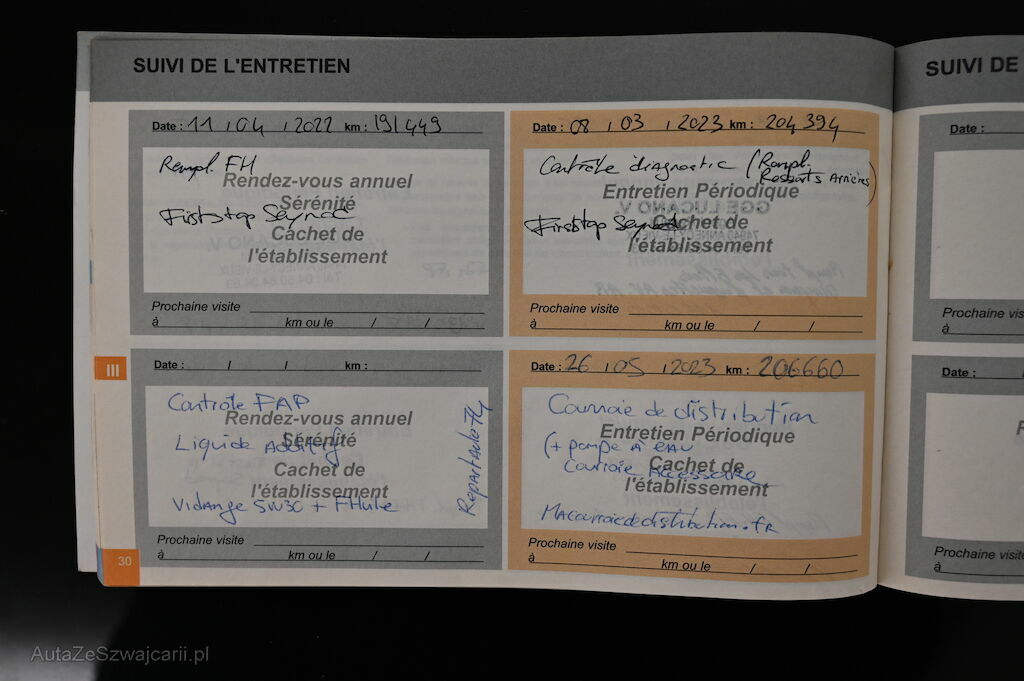 SUIVI DE L'ENTRETIEN
Date : 11 / 04 / 2022 km : 191449
Rempl. FH
Rendez-vous annuel
Sérénité
Firststop Seynod
Cachet de
l'établissement
Prochaine visite
à km ou le / /
Date : 08 / 03 / 2023 km : 204 394
Contrôle diagnostic (Rempl.
Ressorts Arrières)
Entretien Périodique
Firststop Seynod
Cachet de
l'établissement
Prochaine visite
à km ou le / /
Date : / / km :
Contrôle FAP
Rendez-vous annuel
Liquide Additif
Sérénité
Cachet de
l'établissement
Vidange 5W30 + FHuile
RepartAuto74
Prochaine visite
à km ou le / /
Date : 26 / 05 / 2023 km : 206660
Courroie de distribution
Entretien Périodique
(+ pompe à eau
Courroie Accessoire
Cachet de
l'établissement
MAcourroiededistribution.fr
Prochaine visite
à km ou le / /
III
30
SUIVI DE
Date :
Prochaine vis
à
Date :
Prochaine vis
à
AutaZeSzwajcarii.pl